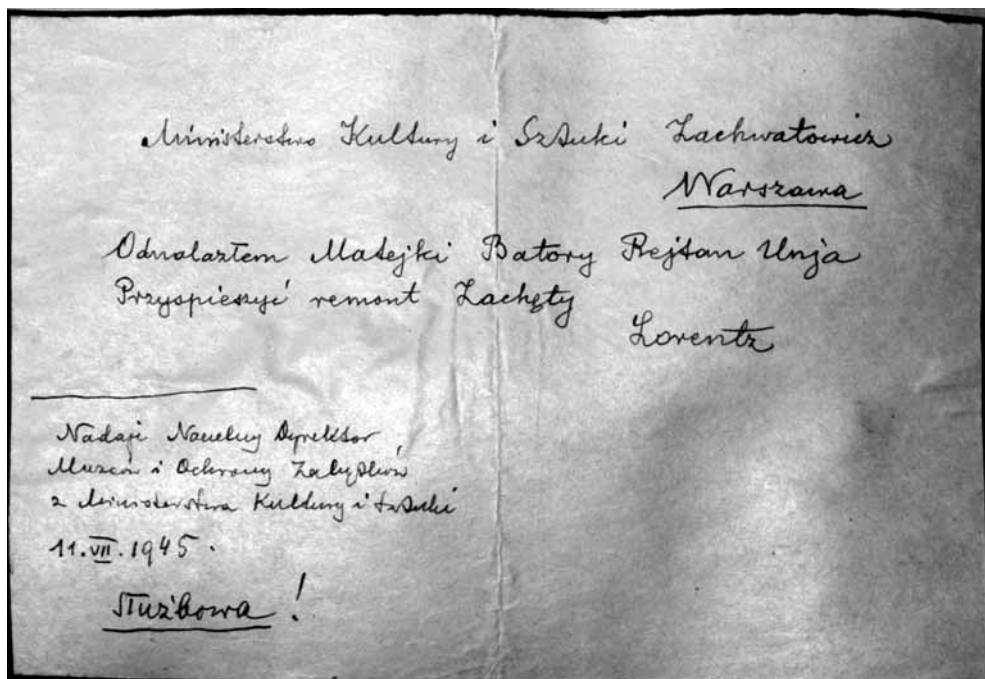 Ministerstwo Kultury i Sztuki Zachwatowicz
Warszawa
Odnalazłem Matejki Batory Rejtan Unja
Przyspieszyć remont Zachęty
Lorentz
Nadaje Naczelny Dyrektor
Muzeów i Ochrony Zabytków
z Ministerstwa Kultury i Sztuki
11.VII.1945.
Służbowa!